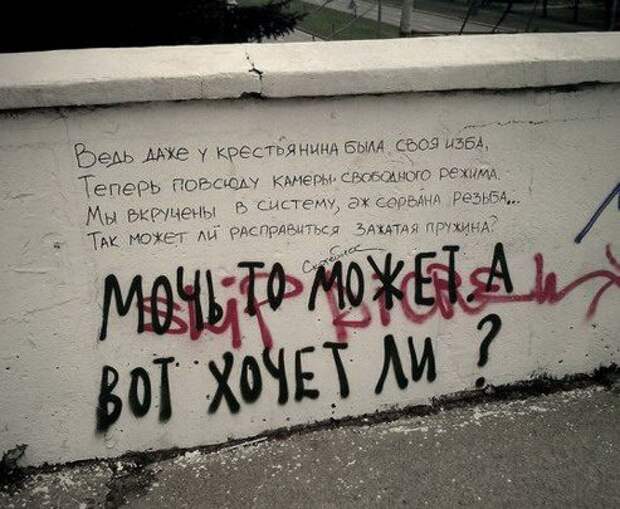 Ведь даже у крестьянина была своя изба,
Теперь повсюду камеры свободного режима.
Мы вкручены в систему, аж сорвана резьба...
Так может ли расправиться зажатая пружина?
МОЧЬ ТО МОЖЕТ. А
ВОТ ХОЧЕТ ЛИ ?